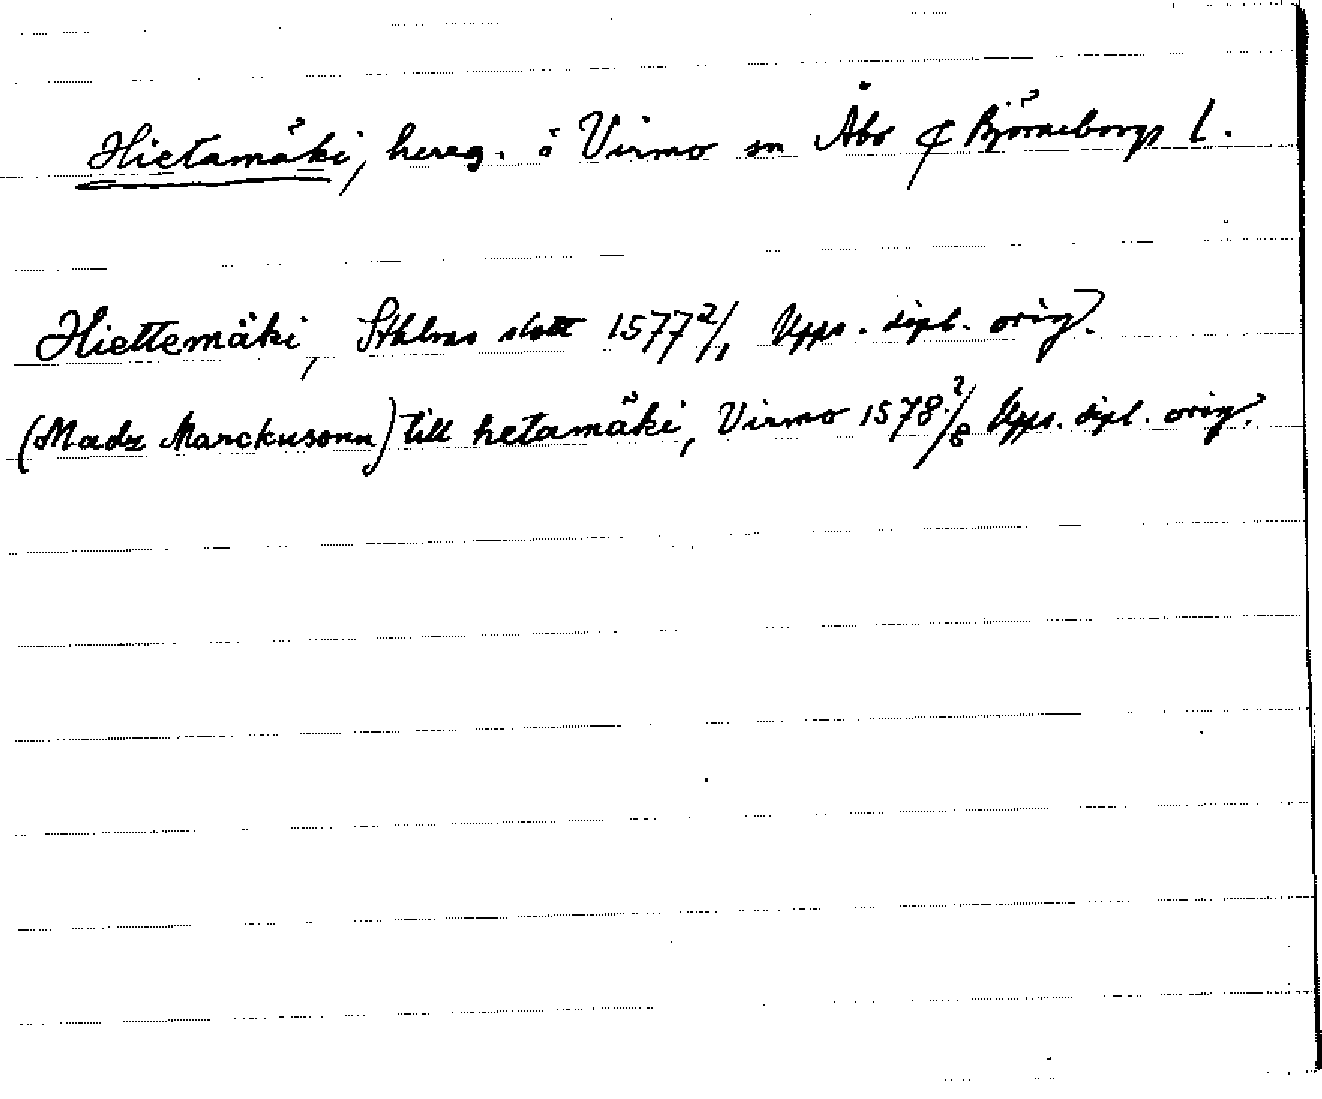 Hietamäki, hereg. i Virmo sn Åbo & Björneborgs l.
Hiettemäki, Sthlms slott 1577 2/1 Upps. dipl. orig.
(Madz Marckusonn) till hetamäki, Virmo 1578 2/8 Upps. dipl. orig.